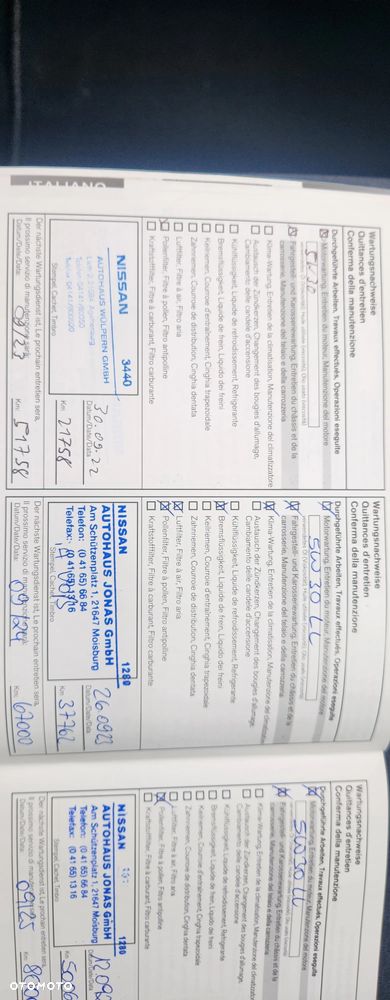 ITALIANO
Wartungsnachweise
Quittances d'entretien
Conferma della manutenzione
Durchgeführte Arbeiten, Travaux effectués, Operazioni eseguite
Motorwartung, Entretien du moteur, Manutenzione del motore
5W30
Fahrgestell- und Karosseriewartung, Entretien du châssis et de la
carrosserie, Manutenzione del telaio e della carrozzeria
Klima-Wartung, Entretien de la climatisation, Manutenzione del climatizzatore
Austausch der Zündkerzen, Changement des bougies d'allumage,
Cambiamento delle candele d'accensione
Kühlflüssigkeit, Liquide de refroidissement, Refrigerante
Bremsflüssigkeit, Liquide de frein, Liquido dei freni
Keilriemen, Courroie d'entraînement, Cinghia trapezoidale
Zahnriemen, Courroie de distribution, Cinghia dentata
Luftfilter, Filtre à air, Filtro aria
Pollenfilter, Filtre à pollen, Filtro antipolline
Kraftstofffilter, Filtre à carburant, Filtro carburante
NISSAN 3440
AUTOHAUS WÜLPERN GMBH
Stempel, Cachet, Timbro
30.09.22
Datum/Date/Data
21758
Km
Der nächste Wartungsdienst ist, Le prochain entretien sera,
Il prossimo servizio di manutenzione
Datum/Date/Data: 09/23
Km: 51758
Wartungsnachweise
Quittances d'entretien
Conferma della manutenzione
Durchgeführte Arbeiten, Travaux effectués, Operazioni eseguite
Motorwartung, Entretien du moteur, Manutenzione del motore
5W30 LL
Fahrgestell- und Karosseriewartung, Entretien du châssis et de la
carrosserie, Manutenzione del telaio e della carrozzeria
Klima-Wartung, Entretien de la climatisation, Manutenzione del climatizzatore
Austausch der Zündkerzen, Changement des bougies d'allumage,
Cambiamento delle candele d'accensione
Kühlflüssigkeit, Liquide de refroidissement, Refrigerante
Bremsflüssigkeit, Liquide de frein, Liquido dei freni
Keilriemen, Courroie d'entraînement, Cinghia trapezoidale
Zahnriemen, Courroie de distribution, Cinghia dentata
Luftfilter, Filtre à air, Filtro aria
Pollenfilter, Filtre à pollen, Filtro antipolline
Kraftstofffilter, Filtre à carburant, Filtro carburante
NISSAN 1280
AUTOHAUS JONAS GmbH
Am Schützenplatz 1, 21647 Moisburg
Telefon: (0 41 65) 66 84
Telefax: (0 41 65) 13 16
Stempel, Cachet, Timbro
26.09.23
Datum/Date/Data
37762
Km
Der nächste Wartungsdienst ist, Le prochain entretien sera,
Il prossimo servizio di manutenzione
Datum/Date/Data:
Km: 67000
Wartungsnachweise
Quittances d'entretien
Conferma della manutenzione
Durchgeführte Arbeiten, Travaux effectués, Operazioni eseguite
Motorwartung, Entretien du moteur, Manutenzione del motore
5W30 LL
Fahrgestell- und Karosseriewartung, Entretien du châssis et de la
carrosserie, Manutenzione del telaio e della carrozzeria
Klima-Wartung, Entretien de la climatisation, Manutenzione del
Austausch der Zündkerzen, Changement des bougies d'allumage,
Cambiamento delle candele d'accensione
Kühlflüssigkeit, Liquide de refroidissement, Refrigerante
Bremsflüssigkeit, Liquide de frein, Liquido dei freni
Keilriemen, Courroie d'entraînement, Cinghia trapezoidale
Zahnriemen, Courroie de distribution, Cinghia dentata
Luftfilter, Filtre à air, Filtro aria
Pollenfilter, Filtre à pollen, Filtro antipolline
Kraftstofffilter, Filtre à carburant, Filtro carburante
NISSAN 1280
AUTOHAUS JONAS GmbH
Am Schützenplatz 1, 21647 Moisburg
Telefon: (0 41 65) 66 84
Telefax: (0 41 65) 13 16
Stempel, Cachet, Timbro
Datum/Date/Data
Km
Der nächste Wartungsdienst ist, Le prochain entretien sera,
Il prossimo servizio di manutenzione
Datum/Date/Data: 09/25
Km:
OTOMOTO